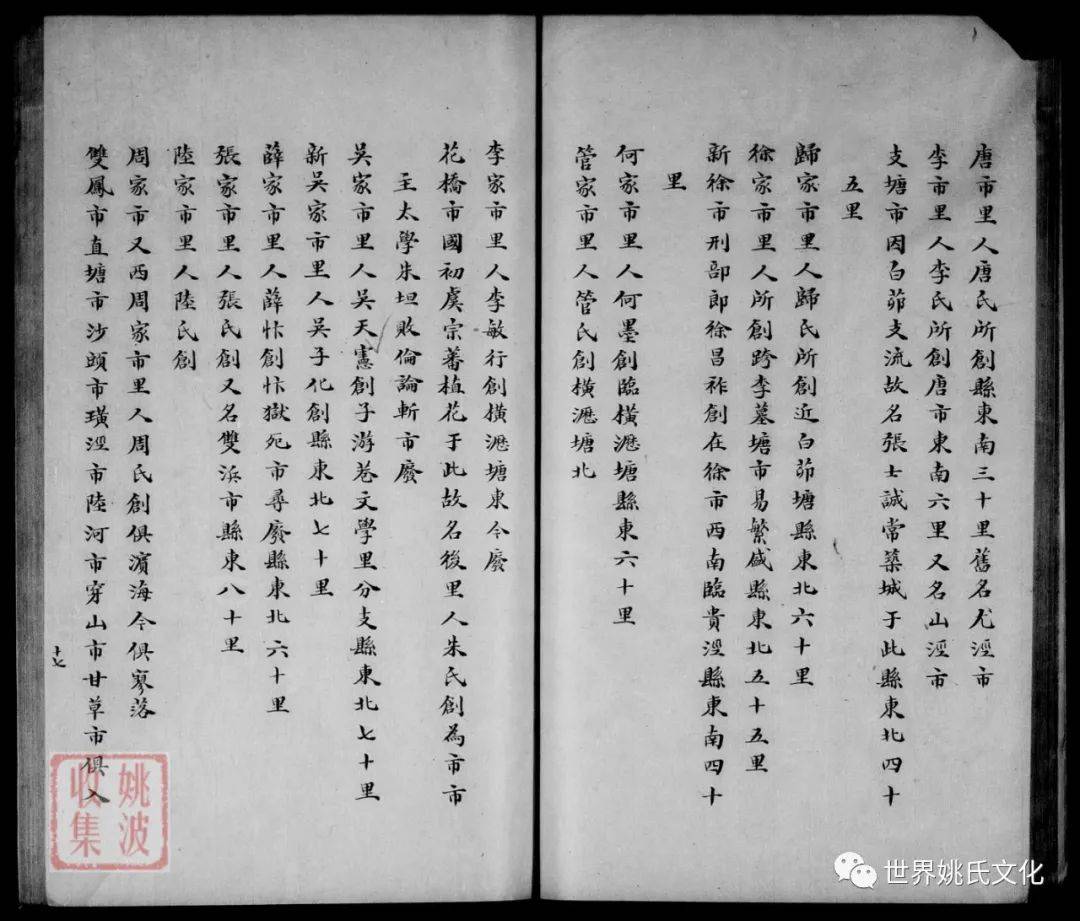 唐市里人唐氏所創縣東南三十里舊名尤涇市
李市里人李氏所創唐市東南六里又名山涇市
支塘市因白茆支流故名張士誠常築城于此縣東北四十
五里
歸家市里人歸氏所創近白茆塘縣東北六十里
徐家市里人所創跨李墓塘市易繁盛縣東北五十五里
新徐市刑部郎徐昌祚創在徐市西南臨貴涇縣東南四十
里
何家市里人何墨創臨橫瀝塘縣東六十里
管家市里人管氏創橫瀝塘北
李家市里人李敏行創橫瀝塘東今廢
花橋市國初虞宗蕃植花于此故名後里人朱氏創為市市
主太學朱坦敗倫論斬市廢
吳家市里人吳天憲創子游巷文學里分支縣東北七十里
新吳家市里人吳子化創縣東北七十里
薛家市里人薛忭創忭獄死市尋廢縣東北六十里
張家市里人張氏創又名雙浜市縣東八十里
陸家市里人陸氏創
周家市又西周家市里人周氏創俱濱海今俱寥落
雙鳳市直塘市沙頭市璜涇市陸河市穿山市甘草市俱入
十七
姚波
收集
世界姚氏文化